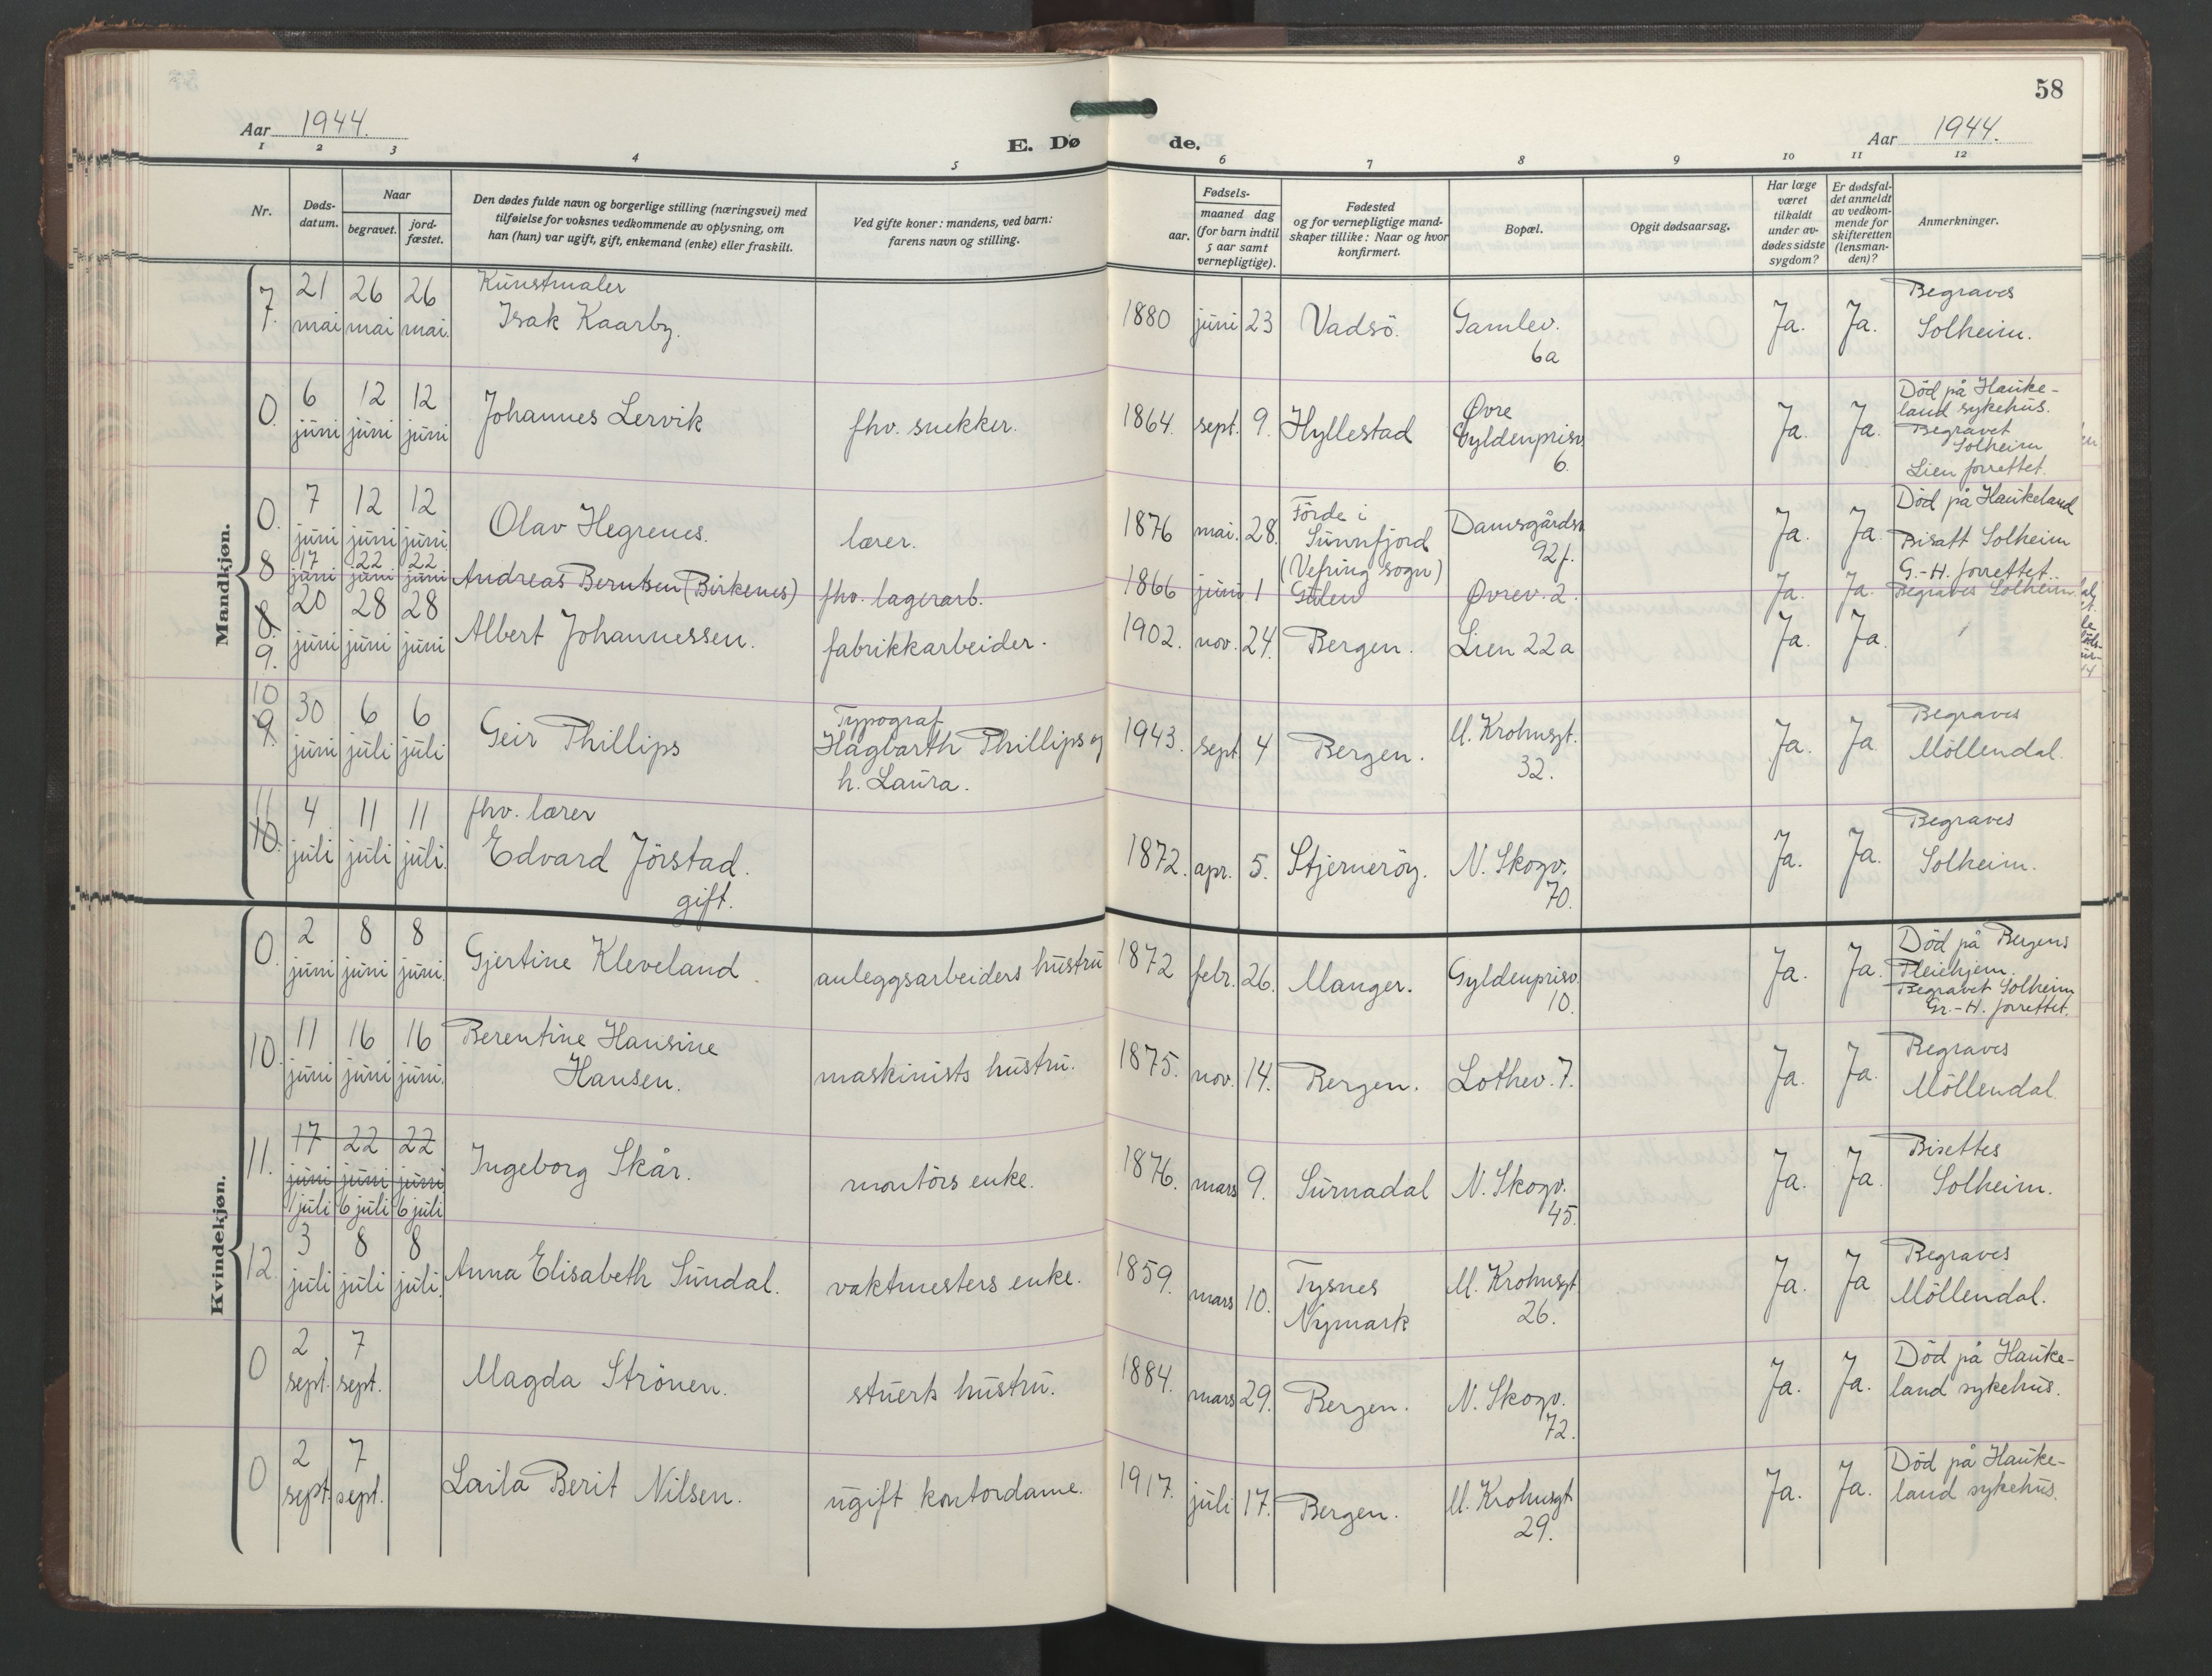 58
Aar 1944.
E. Døde.
Aar 1944.
1 2 3 4 5 6 7 8 9 10 11 12
Nr.
Døds-
datum.
Naar
begravet.
jord-
fæstet.
Den dødes fulde navn og borgerlige stilling (næringsvei) med
tilføielse for voksnes vedkommende av oplysning, om
han (hun) var ugift, gift, enkemand (enke) eller fraskilt.
Ved gifte koner: mandens, ved barn:
farens navn og stilling.
Fødsels-
aar.
maaned dag
(for barn indtil
5 aar samt
vernepligtige).
Fødested
og for vernepligtige mand-
skaper tillike: Naar og hvor
konfirmert.
Bopæl.
Opgit dødsaarsag.
Har læge
været
tilkaldt
under av-
dødes sidste
sygdom?
Er dødsfal-
det anmeldt
av vedkom-
mende for
skifteretten
(lensman-
den)?
Anmerkninger.
Mandkjøn.
7. 21 mai 26 mai 26 mai.
Kunstmaler
Isak Kaarby.
1880 juni 23 Vadsö. Gamlev.
6a
Ja. Ja.
Begraves
Solheim.
0. 6 juni 12 juni 12 juni
Johannes Lervik
fhv. snekker.
1864. sept. 9. Hyllestad
Øvre
Gyldenprisv
6.
Ja. Ja.
Död på Hauke-
land sykehus.
Begravet
Solheim
Lien forrettet.
0. 7 juni 12 juni 12 juni.
Olav Hegrenes.
lærer.
1876 mai. 28.
Förde i
Sunnfjord
(Vefring sogn)
Damsgårdsv
92f.
Ja. Ja.
Död på Haukeland
Bisatt Solheim
G.-H. forrettet.
8 17 juni 22 juni 22 juni
Andreas Berntsen (Birkenes)
fhv. lagerarb.
1866 juni 1 Gulen Øvrev. 2.
Ja. Ja.
Begraves Solheim.
8. 9. 20 juni 28 juni 28 juni
Albert Johannessen.
fabrikkarbeider.
1902. nov. 24. Bergen. Lien 22a
Ja. Ja.
10 9. 30 juni 6 juli 6 juli
Geir Phillips
Typograf
Hagbarth Phillips og
h. Laura.
1943. sept 4 Bergen.
M. Krohnsgt.
32.
Ja. Ja
Begraves
Möllendal.
11 10. 4 juli 11 juli 11 juli.
fhv. lærer
Edvard Jörstad.
gift.
1872. apr. 5. Stjerneröy. N. Skogv.
70.
Ja. Ja.
Begraves
Solheim.
Kvindekjøn.
0. 2 juni 8 juni 8 juni.
Gjertine Kleveland.
anleggsarbeiders hustru
1872 febr. 26. Manger. Gyldenprisv.
10.
Ja. Ja.
Död på Bergens
Pleiehjem.
Begravet Solheim
Gr.-H. forrettet.
10. 11 juni 16 juni 16 juni.
Berentine Hansine
Hansen.
maskinists hustru.
1875. nov. 14. Bergen. Lothev. 7.
Ja. Ja.
Begraves
Möllendal.
11. 17 juni 22 juni 22 juni
1 juli 6 juli 6 juli
Ingeborg Skår.
montörs enke.
1876. mars 9. Surnadal N. Skogv.
45.
Ja. Ja.
Bisettes
Solheim.
12. 3 juli 8 juli 8 juli.
Anna Elisabeth Sundal.
vaktmesters enke.
1859. mars 10.
Tysnes
Nymark
M. Krohnsgt
26.
Ja. Ja
Begraves
Möllendal.
0 2 sept. 7 sept.
Magda Strönen.
stuerts hustru.
1884. mars 29. Bergen. N. Skogv.
72.
Ja. Ja.
Död på Hauke-
land sykehus.
0 2 sept. 7 sept.
Laila Berit Nilsen.
ugift kontordame.
1917. juli 17. Bergen. M. Krohnsgt
29.
Ja. Ja.
Död på Hauke-
land sykehus.